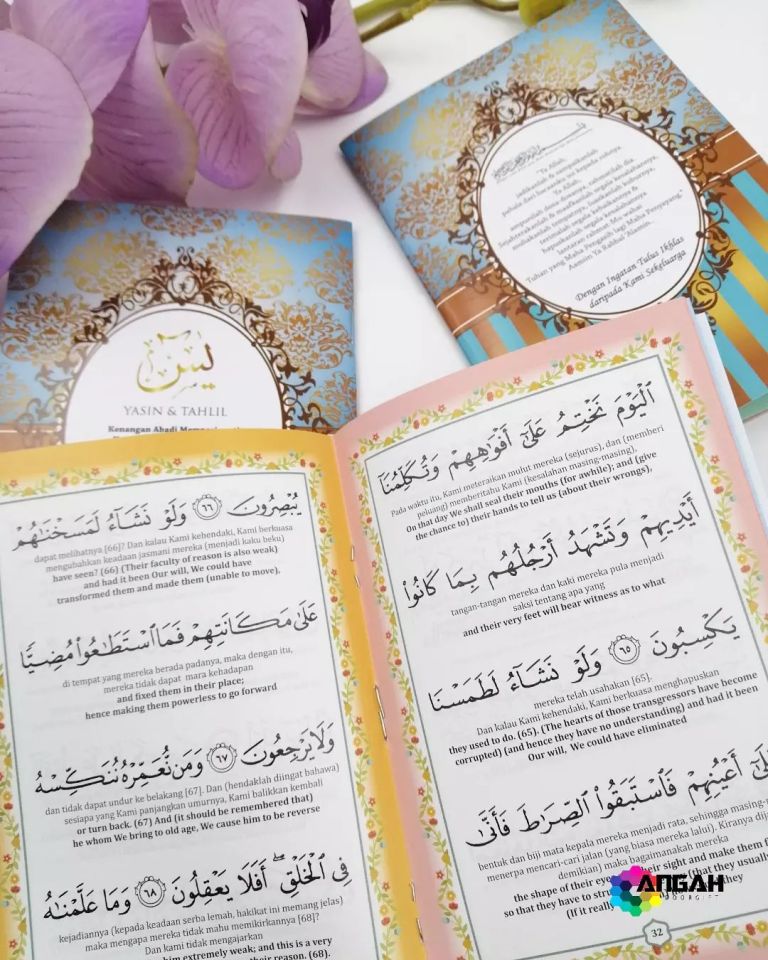 Ya Allah,
jadikanlah & sampaikanlah
pahala dari bacaanku ini kepada rohnya
Ya Allah,
ampunilah dosa dosanya, rahmatilah dia
Sejahterakanlah & maafkanlah segala kesalahannya,
muliakanlah tempatnya, luaskanlah kuburnya,
terimalah segala kebaikannya &
hapuskanlah segala kesalahannya
lantaran rahmat Mu wahai
Tuhan yang Maha Pengasih lagi Maha Penyayang."
Aamiin Ya Rabbal 'Alamin...
Dengan Ingatan Tulus Ikhlas
daripada Kami Sekeluarga
يس
YASIN & TAHLIL
Kenangan Abadi
ٱلْيَوْمَ نَخْتِمُ عَلَىٰٓ أَفْوَٰهِهِمْ وَتُكَلِّمُنَآ
Pada waktu itu Kami meteraikan mulut mereka (sejurus), dan (memberi
peluang) memberitahu Kami (kesalahan masing-masing),
On that day We shall seal their mouths (for awhile); and (give
the chance to) their hands to tell us (about their wrongs),
أَيْدِيهِمْ وَتَشْهَدُ أَرْجُلُهُم بِمَا كَانُوا۟
tangan-tangan mereka dan kaki mereka pula menjadi
saksi tentang apa yang
and their very feet will bear witness as to what
يَكْسِبُونَ ٦٥ وَلَوْ نَشَآءُ لَطَمَسْنَا
mereka telah usahakan [65].
Dan kalau Kami kehendaki, Kami berkuasa menghapuskan
they used to do. (65). (The hearts of those transgressors have become
corrupted) (and hence they have no understanding) and had it been
Our will, We could have eliminated
أَعْيُنِهِمْ فَٱسْتَبَقُوا۟ ٱلصِّرَٰطَ فَأَنَّىٰ
bentuk dan biji mata kepala mereka menjadi rata, sehingga masing-m
menerpa mencari-cari jalan (yang biasa mereka lalui). Kiranya dija
demikian) maka bagaimanakah mereka
the shape of their eye their sight and make them f
so that they have to str that they usually
(If it really they
32
يُبْصِرُونَ ٦٦ وَلَوْ نَشَآءُ لَمَسَخْنَٰهُمْ
dapat melihatnya [66]? Dan kalau Kami kehendaki, Kami berkuasa
mengubahkan keadaan jasmani mereka (menjadi kaku beku)
have seen? (66) (Their faculty of reason is also weak)
and had it been Our will, We could have
transformed them and made them (unable to move),
عَلَىٰ مَكَانَتِهِمْ فَمَا ٱسْتَطَٰعُوا۟ مُضِيًّا
di tempat yang mereka berada padanya, maka dengan itu,
mereka tidak dapat mara kehadapan
and fixed them in their place;
hence making them powerless to go forward
وَلَا يَرْجِعُونَ ٦٧ وَمَن نُّعَمِّرْهُ نُنَكِّسْهُ
dan tidak dapat undur ke belakang [67]. Dan (hendaklah diingat bahawa)
sesiapa yang Kami panjangkan umurnya, Kami balikkan kembali
or turn back. (67) And (it should be remembered that)
he whom We bring to old age, We cause him to be reverse
فِى ٱلْخَلْقِ ۖ أَفَلَا يَعْقِلُونَ ٦٨ وَمَا عَلَّمْنَٰهُ
kejadiannya (kepada keadaan serba lemah, hakikat ini memang jelas)
maka mengapa mereka tidak mahu memikirkannya [68]?
Dan kami tidak mengajarkan
him extremely weak; and this is a very
their reason. (68).
ANGAH
DOORGIFT